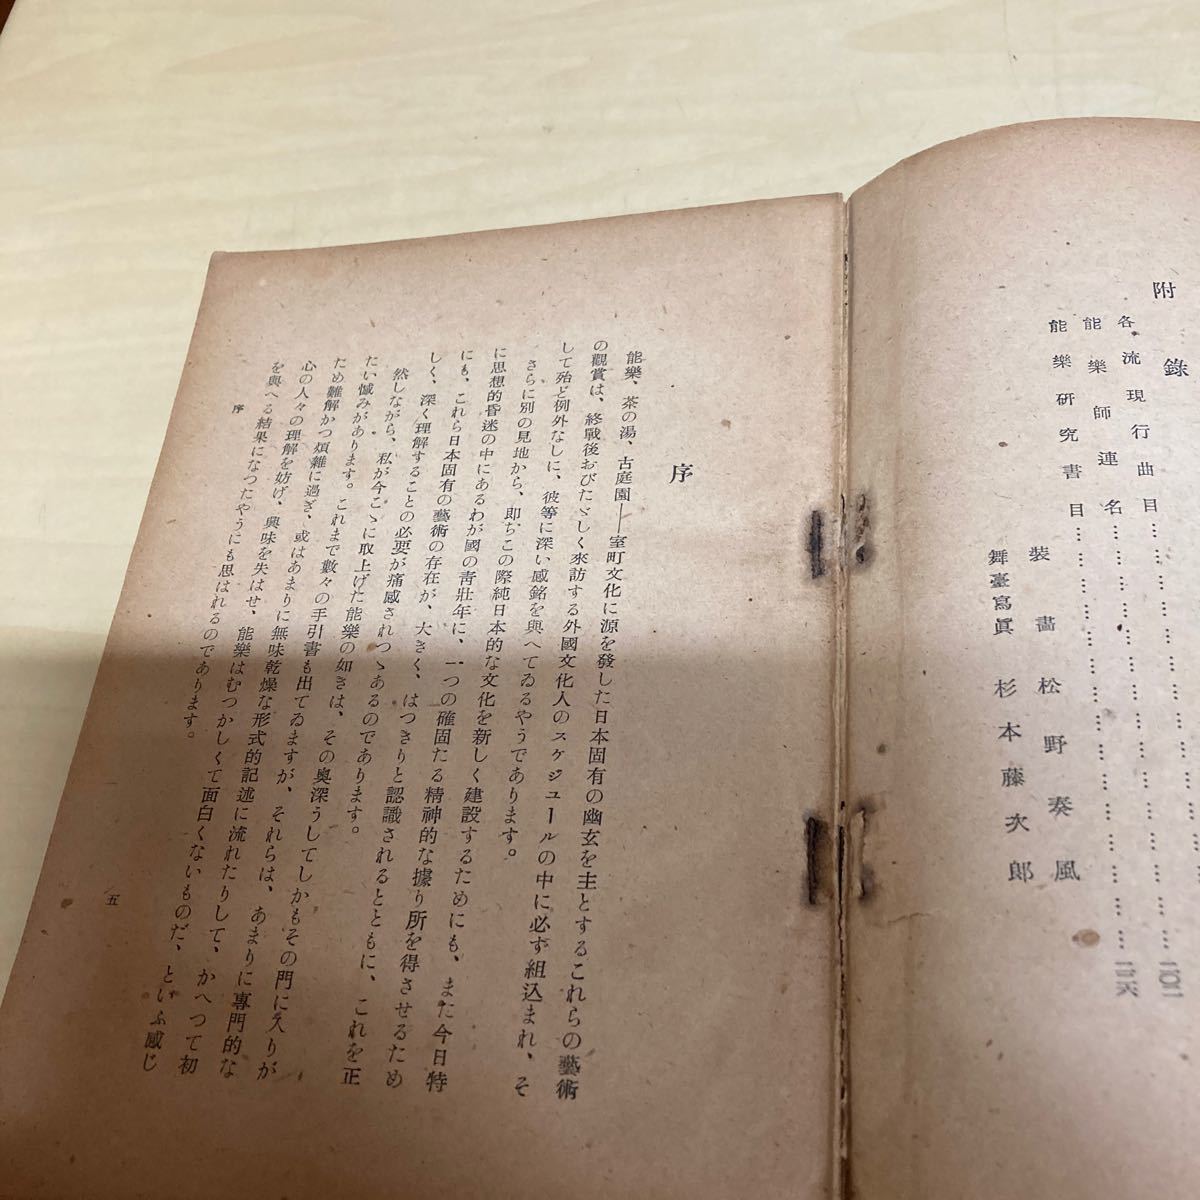 附錄
各流現行曲目………………………………二〇二
能樂師連名………………………………二二六
能樂研究書目………………………………
裝畵 松野奏風
舞臺寫眞 杉本藤次郎
序
能樂、茶の湯、古庭園――室町文化に源を發した日本固有の幽玄を主とするこれらの藝術
の觀賞は、終戰後おびたゞしく來訪する外國文化人のスケジュールの中に必ず組込まれ、そ
して殆ど例外なしに、彼等に深い感銘を與へてゐるやうであります。
さらに別の見地から、卽ちこの際純日本的な文化を新しく建設するためにも、また今日特
に思想的昏迷の中にあるわが國の靑壯年に、一つの確固たる精神的な據り所を得させるため
にも、これら日本固有の藝術の存在が、大きく、はつきりと認識されるとともに、これを正
しく、深く理解することの必要が痛感されつゝあるのであります。
然しながら、私が今こゝに取上げた能樂の如きは、その奧深うしてしかもその門に入りが
たい憾みがあります。これまで數々の手引書も出てゐますが、それらは、あまりに專門的な
ため難解かつ煩雜に過ぎ、或はあまりに無味乾燥な形式的記述に流れたりして、かへつて初
心の人々の理解を妨げ、興味を失はせ、能樂はむつかしくて面白くないものだ、といふ感じ
を與へる結果になつたやうにも思はれるのであります。
序
五